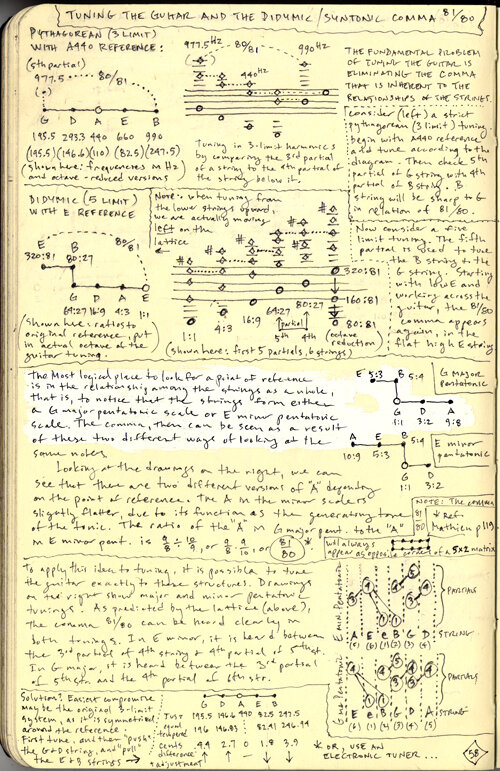 TUNING THE GUITAR AND THE DIDYMIC/SYNTONIC COMMA 81/80
PYTHAGOREAN (3 LIMIT)
WITH A440 REFERENCE:
(5th partial)
977.5 80/81
G D A E B
195.5 293.3 440 660 990
(195.5)(146.6)(110) (82.5)(247.5)
(shown here: frequencies in Hz
and octave-reduced versions
977.5 Hz 80/81 990 Hz
440 Hz
Tuning in 3-limit harmonics
by comparing the 3rd partial
of a string to the 4th partial of
the string below it.
THE FUNDAMENTAL PROBLEM
OF TUNING THE GUITAR IS
ELIMINATING THE COMMA
THAT IS INHERENT TO THE
RELATIONSHIPS OF THE STRINGS.
Consider (left) a strict
pythagorean (3 limit) tuning
begin with A440 reference
and tune according to the
diagram. Then check 5th
partial of G string with 4th
partial of B string. B
string will be sharp to G
in relation of 81/80.
DIDYMIC (5 LIMIT)
WITH E REFERENCE
E B 80/81
320:81 80:27
G D A E
64:27 16:9 4:3 1:1
(shown here: ratios to
original reference, put
in actual octave of the
guitar tuning.
Note: when tuning from
the lower strings upward,
we are actually moving
left on the
lattice
320:81
160:81
80:81
1:1 4:3 16:9 64:27 80:27
partial
5th 4th
(octave
reduction)
(shown here: first 5 partials, 6 strings)
Now consider a five
limit tuning. The fifth
partial is used to tune
the B string to the
G string. Starting
with low E and
working across the
guitar, the 81/80
comma appears
again, in the
flat high E string
The most logical place to look for a point of reference
is in the relationship among the strings as a whole,
that is, to notice that the strings form either
a G major pentatonic scale or E minor pentatonic
scale. The comma, then can be seen as a result
of these two different ways of looking at the
same notes.
E 5:3 B 5:4
G D A
1:1 3:2 9:8
G MAJOR
PENTATONIC
A E B 5:4
10:9 5:3
G D
1:1 3:2
E minor
pentatonic
Looking at the drawings on the right, we can
see that there are two different versions of "A" depending
on the point of reference. The A in the minor scale is
slightly flatter, due to its function as the generating tone
of the tonic. The ratio of the "A" in G major pent. to the "A"
in E minor pent. is 9/8 ÷ 10/9, or 9/8 · 9/10, or 81/80 *
NOTE: The comma
81/80 * Ref.
Mathieu p 119
will always
appear as opposite corners of a 5x2 matrix
To apply this idea to tuning, it is possible to tune
the guitar exactly to these structures. Drawings
on the right show major and minor pentatonic
tunings. As predicted by the lattice (above),
the comma 81/80 can be heard clearly in
both tunings. In E minor, it is heard between
the 3rd partial of 4th string & 4th partial of 5th str.
In G major, it is heard between the 3rd partial
of 5th str. and the 4th partial of 6th str.
E Min. Pentatonic
PARTIALS
A E e B G D STRING
(5) (6) (1) (2) (3) (4)
G Maj Pentatonic
PARTIALS
E e B G D A STRING
(6) (1) (2) (3) (4) (5)
Solution? Easiest compromise
may be the original 3-limit
system, as it is symmetrical
around the reference.
First tune, and then "push"
the G & D string, and "pull"
the E & B strings →
G D A E B
Just 195.5 146.6 440 82.5 247.5
equal
tempered 196 146.83 82.41 246.94
cents
difference 4.4 2.7 0 1.8 3.9
adjustment ↑ ↑ — ↓ ↓
* OR, USE AN
ELECTRONIC TUNER...
58